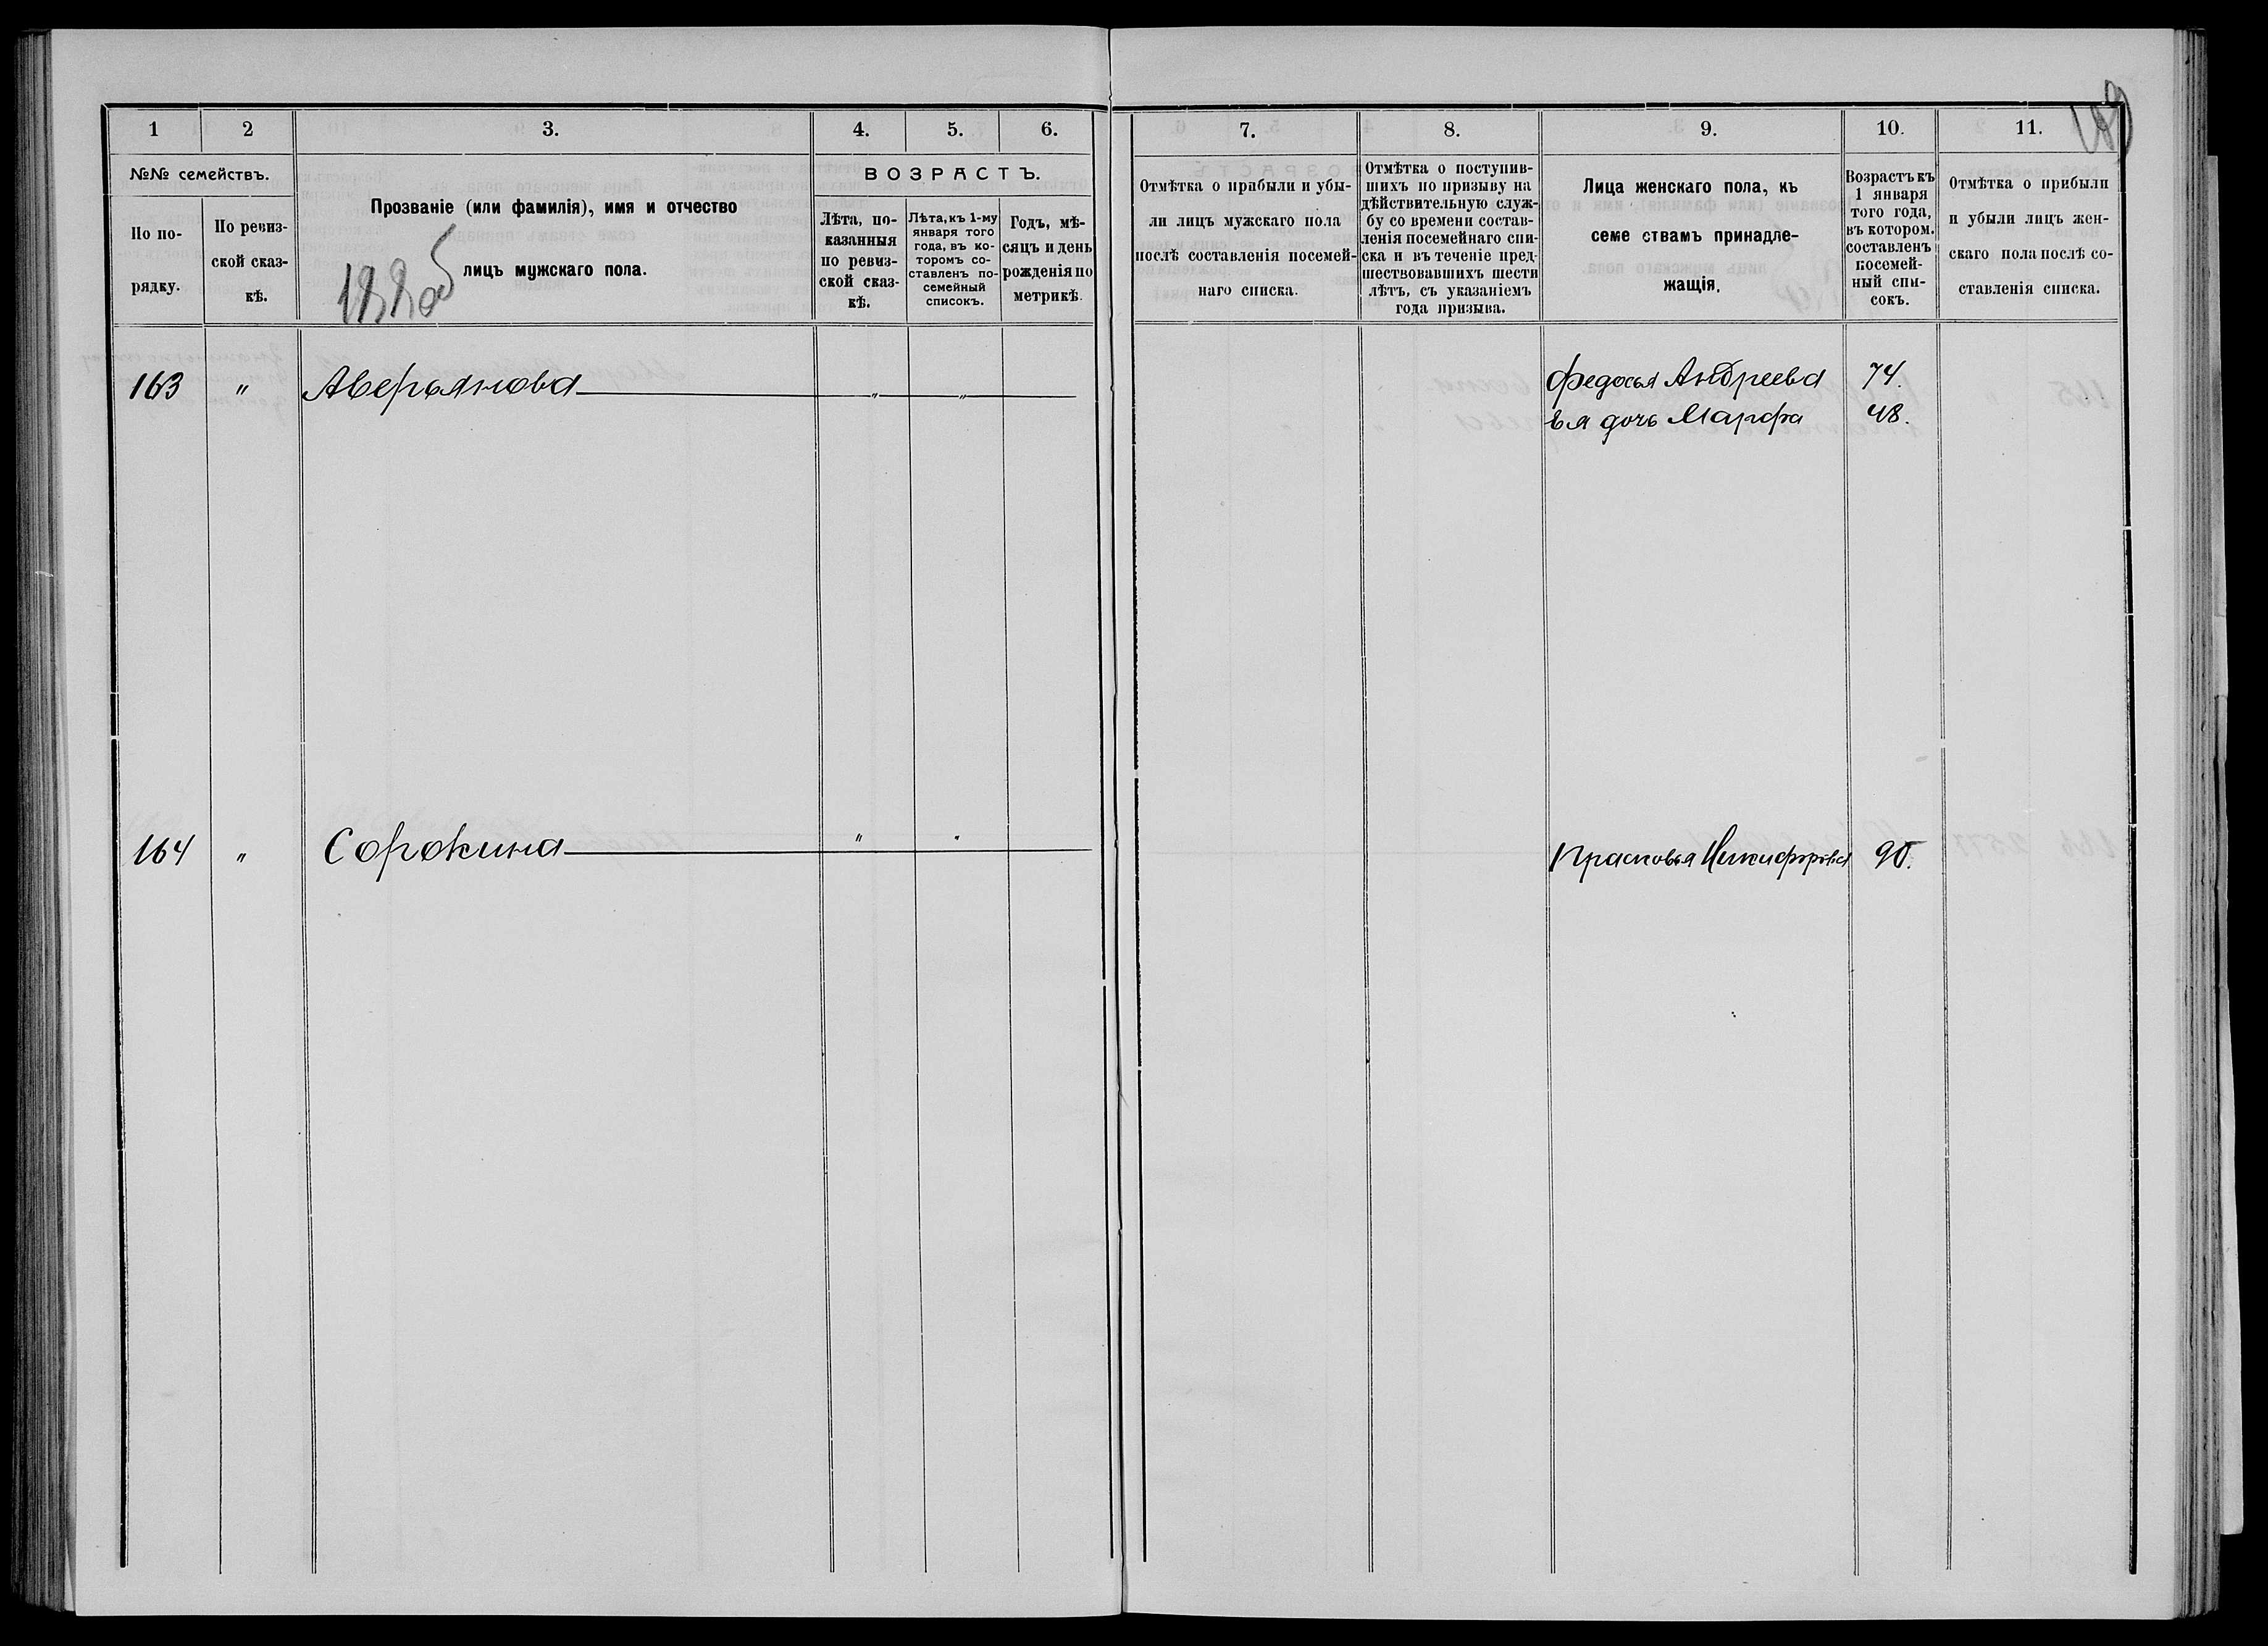 1
2
3.
4.
5.
6.
7.
8.
9.
10.
11.
№№ семействъ.
По по-
рядку.
По ревиз-
ской сказ-
кѣ.
Прозваніе (или фамилія), имя и отчество
лицъ мужскаго пола.
ВОЗРАСТЪ.
Лѣта, по-
казанныя
по ревиз-
ской сказ-
кѣ.
Лѣта, къ 1-му
января того
года, въ ко-
торомъ со-
ставленъ по-
семейный
списокъ.
Годъ, мѣ-
сяцъ и день
рожденія по
метрикѣ.
Отмѣтка о прибыли и убы-
ли лицъ мужскаго пола
послѣ составленія посемей-
наго списка.
Отмѣтка о поступив-
шихъ по призыву на
дѣйствительную служ-
бу со времени состав-
ленія посемейнаго спи-
ска и въ теченіе пред-
шествовавшихъ шести
лѣтъ, съ указаніемъ
года призыва.
Лица женскаго пола, къ
семе ствамъ принадле-
жащія,
Возрастъ къ
1 января
того года,
въ котором.
составленъ
посемей-
ный спи-
сокъ.
Отмѣтка о прибыли
и убыли лицъ жен-
скаго пола послѣ со-
ставленія списка.
163 " Аверьянова " " Федосья Андреева 74.
Ея дочь Марфа 48.
164 " Сорокина " " Прасковья Никифорова 90.